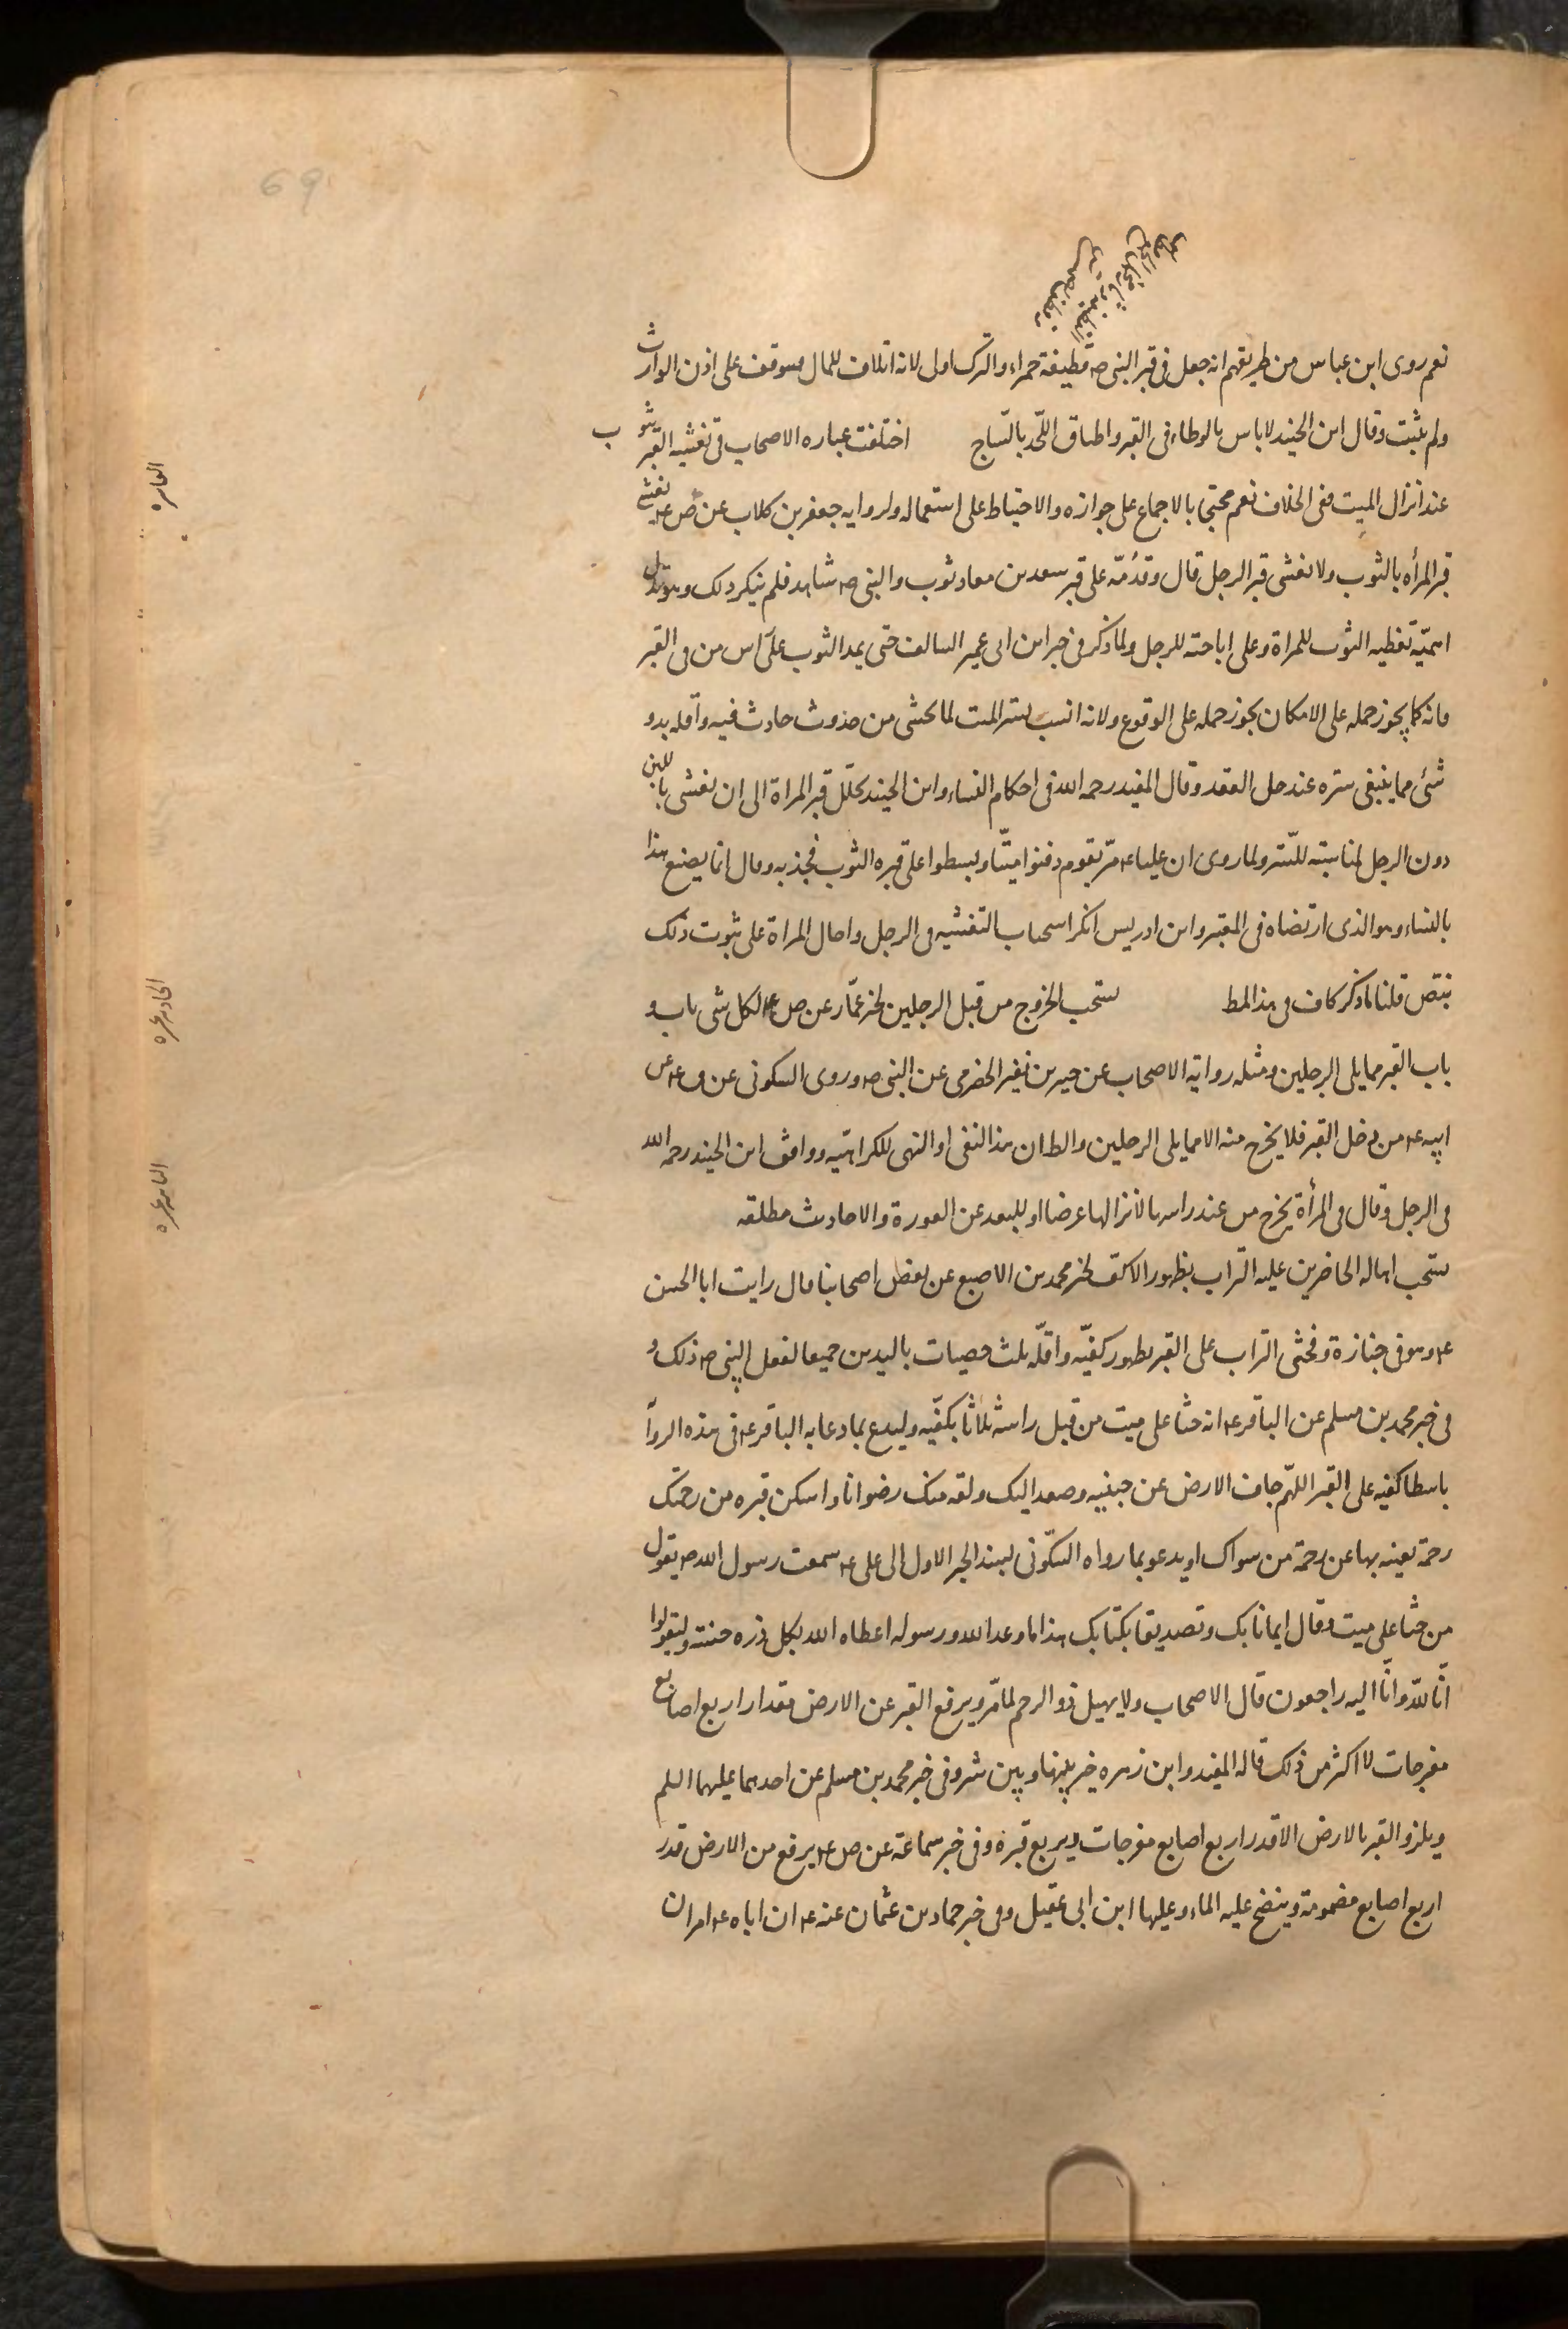 69
نعم روى ابن عباس من طريقهم انه جعل فى قبر النبى ص قطيفة حمراء والترك اولى لانه اتلاف للمال فتوقف على اذن الوارث
ولم يثبت وقال ابن الجنيد لا باس بالوطاء فى القبر واطباق اللحد بالساج اختلفت عباره الاصحاب فى تغشيه القبر بثوب
عند انزال الميت ففى الخلاف نعم محتجا بالاجماع على جوازه والاحتياط على استعماله ولروايه جعفر بن كلاب عن ص ع يغشى
قبر المرأه بالثوب ولا يغشى قبر الرجل قال وقد مد على قبر سعد بن معاد ثوب والنبى ص شاهد فلم ينكر ذلك وهو يدل
تغطيه الثوب للمراة وعلى اباحته للرجل ولما ذكر فى خبر ابن ابى عمير السالف حتى يمد الثوب على راس من فى القبر
فانه كما يجوز حمله على الامكان يجوز حمله على الوقوع ولانه انسب بستر الميت لما يخشى من حدوث حادث فيه واقله بدو
شئ مما ينبغى ستره عند حل العقد وقال المفيد رحمه الله فى احكام النساء وابن الجنيد يجلل قبر المراة الى ان يغشى باللبن
دون الرجل لمناسبته للستر ولما روى ان عليا ع مر بقوم دفنوا ميتا وبسطوا على قبره الثوب فجذبه وقال انما يصنع هذا
بالنساء وهو الذى ارتضاه فى المعتبر وابن ادريس انكر استحباب التغشيه فى الرجل واحال المراة على ثبوت ذلك
بنص قلنا ما ذكر كاف فى هذا المط يستحب الخروج من قبل الرجلين لخبر عمار عن ص ع لكل شى باب و
باب القبر مما يلى الرجلين ومثله رواية الاصحاب عن جبير بن نفير الحضرمى عن النبى ص وروى السكونى عن ص ع عن
ابيه ع من دخل القبر فلا يخرج منه الا مما يلى الرجلين والظ ان هذا النفى او النهى للكراهيه ووافق ابن الجنيد رحمه الله
فى الرجل وقال فى المرأة يخرج من عند راسها لانزالها عرضا او للبعد عن العورة والاحاديث مطلقه
يستحب اهاله الحاضرين عليه التراب بظهور الاكف لخبر محمد بن الاصبغ عن بعض اصحابنا قال رايت ابا الحسن
ع وهو فى جنازة فحثى التراب على القبر بظهور كفيه واقله ثلث حثيات باليدين جميعا لفعل النبى ص ذلك و
فى خبر محمد بن مسلم عن الباقر ع انه حثا على ميت من قبل راسه ثلاثا بكفيه وليدع بما دعا به الباقر ع فى هذه الروا
باسطا كفيه على القبر اللهم جاف الارض عن جنبيه وصعد اليك ولقه منك رضوانا واسكن قبره من رحمتك
رحمة تغنيه بها عن رحمة من سواك او يدعو بما رواه السكونى بسند الخبر الاول الى على ع سمعت رسول الله ص يقول
من حثا على ميت وقال ايمانا بك وتصديقا بكتابك هذا ما وعد الله ورسوله اعطاه الله بكل ذره حسنه وليقولوا
انا لله وانا اليه راجعون قال الاصحاب ولا يهيل ذو الرحم لما مر ويرفع القبر عن الارض مقدار اربع اصابع
مفرجات لا اكثر من ذلك قاله المفيد وابن زهره خير بينها وبين شبر وفى خبر محمد بن مسلم عن احدهما عليهما السلم
ويلزق القبر بالارض الا قدر اربع اصابع مفرجات ويربع قبره وفى خبر سماعة عن ص ع يرفع من الارض قدر
اربع اصابع مضمومة وينضح عليه الماء وعليها ابن ابى عقيل وفى خبر حماد بن عثمان عنه ع ان اباه ع امر ان